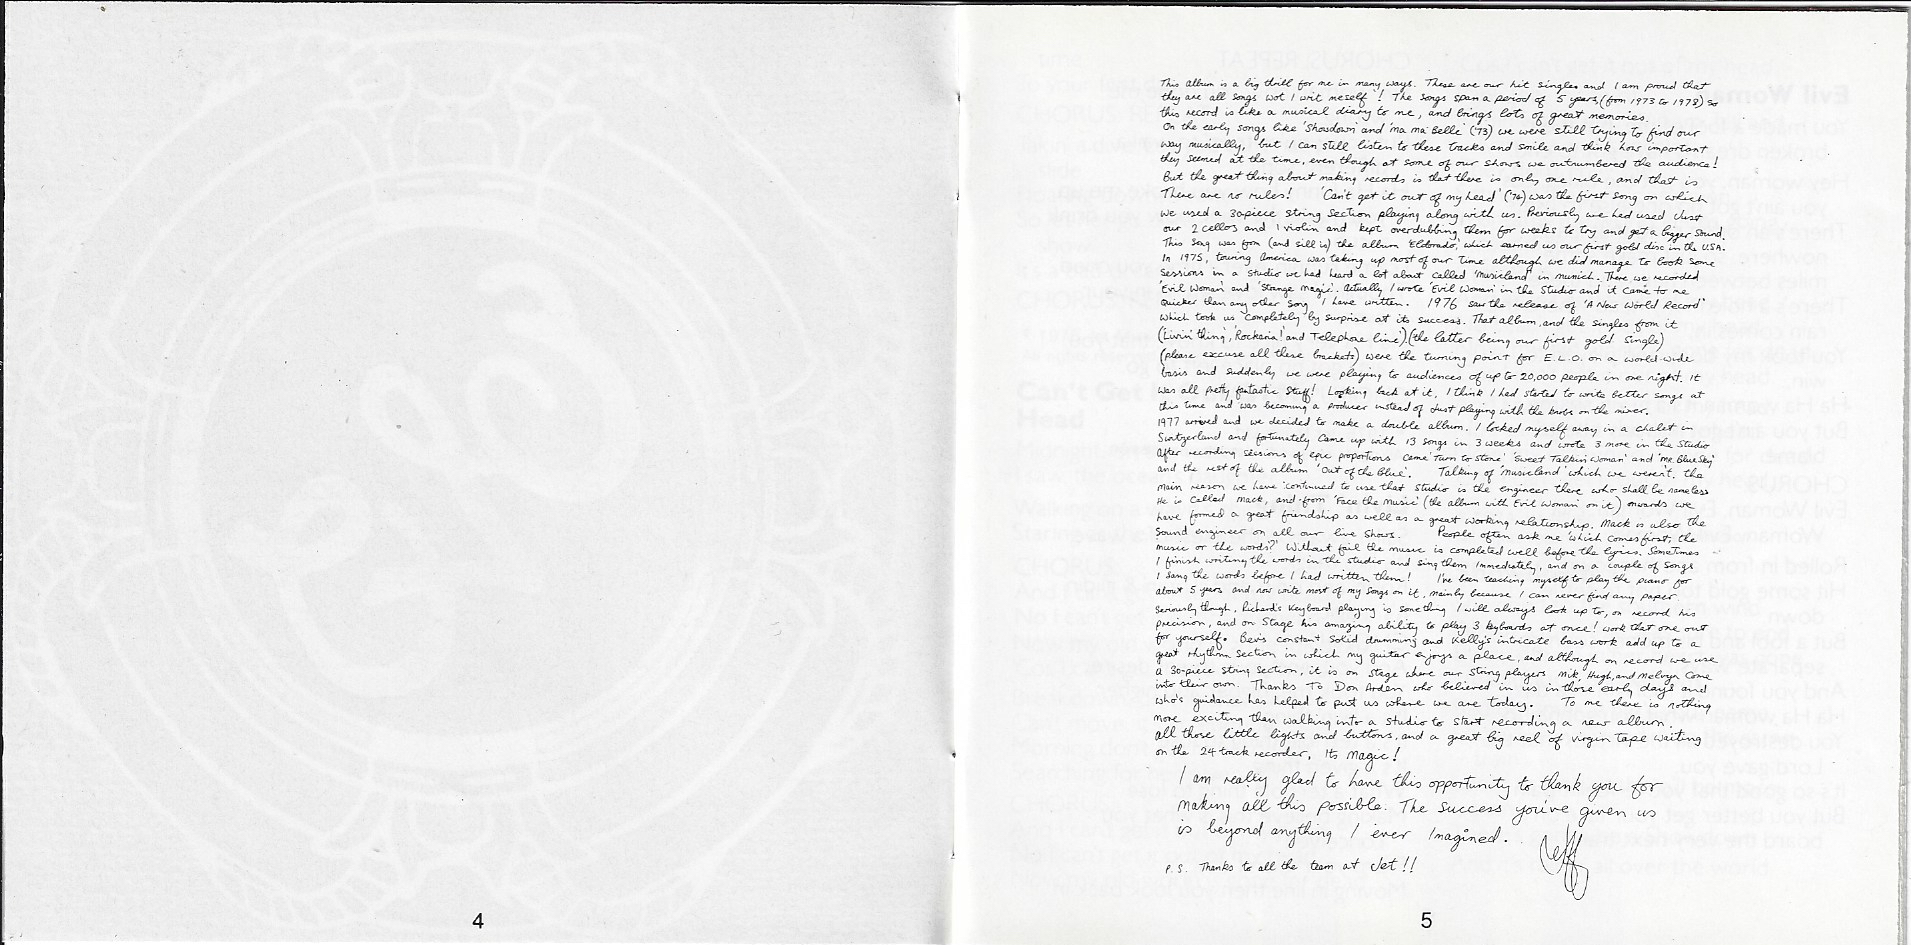 This album is a big thrill for me in many ways. These are our hit singles and I am proud that
they are all songs wot I writ meself! The songs span a period of 5 years, (from 1973 to 1978) so
this record is like a musical diary to me, and brings lots of great memories.
On the early songs like 'Showdown' and 'ma ma Belle' ('73) we were still trying to find our
way musically, but I can still listen to these tracks and smile and think how important
they seemed at the time, even though at some of our shows we outnumbered the audience!
But the great thing about making records is that there is only one rule, and that is
There are no rules! 'Can't get it out of my head' ('74) was the first song on which
we used a 30piece string section playing along with us. Previously we had used Just
our 2 cellos and 1 violin and kept overdubbing them for weeks to try and get a bigger sound.
This song was from (and still is) the album 'Eldorado', which earned us our first gold disc in the U.S.A.
In 1975, touring America was taking up most of our time although we did manage to book some
sessions in a studio we had heard a lot about called 'Musicland' in munich. There we recorded
'Evil Woman' and 'Strange Magic'. Actually I wrote 'Evil Woman' in the studio and it came to me
quicker than any other song I have written. 1976 saw the release of 'A New World Record'
which took us completely by surprise at its success. That album, and the singles from it
(Livin' thing', 'Rockaria!' and Telephone line') (the latter being our first gold single)
(please excuse all these brackets) were the turning point for E.L.O. on a world-wide
basis and suddenly we were playing to audiences of up to 20,000 people in one night. It
was all pretty fantastic stuff! Looking back at it, I think I had started to write better songs at
this time and was becoming a producer instead of Just playing with the knobs on the mixer.
1977 arrived and we decided to make a double album. I locked myself away in a chalet in
Switzerland and fortunately came up with 13 songs in 3 weeks and wrote 3 more in the studio
After recording sessions of epic proportions came 'Turn to Stone' 'Sweet Talkin' Woman' and 'Mr. Blue Sky'
and the rest of the album 'Out of the Blue'. Talking of 'Musicland' which we weren't, the
main reason we have continued to use that studio is the engineer there who shall be nameless
He is called Mack, and from 'Face the Music' (the album with Evil Woman on it) onwards we
have formed a great friendship as well as a great working relationship. Mack is also the
sound engineer on all our live shows. People often ask me 'which comes first, the
music or the words?' Without fail the music is completed well before the lyrics. Sometimes
I finish writing the words in the studio and sing them immediately, and on a couple of songs
I sang the words before I had written them! I've been teaching myself to play the piano for
about 5 years and now write most of my songs on it, mainly because I can never find any paper.
Seriously though, Richard's keyboard playing is something I will always look up to, on record his
precision, and on stage his amazing ability to play 3 keyboards at once! work that one out
for yourself. Bevs constant solid drumming and Kelly's intricate bass work add up to a
great rhythm section in which my guitar enjoys a place, and although on record we use
a 30-piece string section, it is on stage where our string players Mik, Hugh, and Melvyn come
into their own. Thanks To Don Arden who believed in us in those early days and
who's guidance has helped to put us where we are today. To me there is nothing
more exciting than walking into a studio to start recording a new album.
all those little lights and buttons, and a great big reel of virgin tape waiting
on the 24 track recorder, Its magic!
I am really glad to have this opportunity to thank you for
making all this possible. The success you've given us
is beyond anything I ever Imagined.
Jeff
P.S. Thanks to all the team at Jet!!
4
5